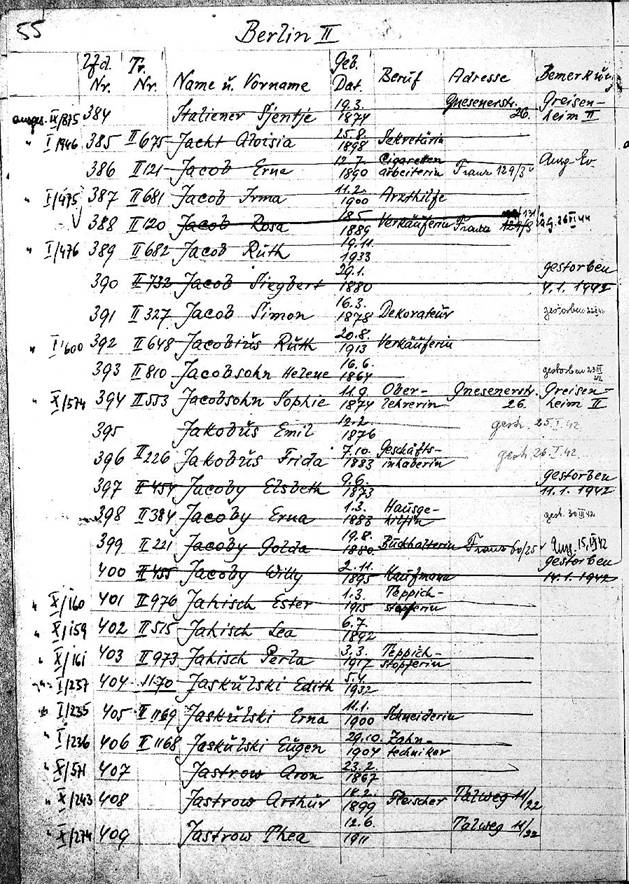 55
Berlin II
Lfd. Nr. Tr. Nr. Name u. Vorname Geb. Dat. Beruf Adresse Bemerkung
ausges. IX/875 384 Italiener Sjentje 19.3. 1874 Gnesenerstr. 26. Greisenheim II
" I/1946 385 II 675 Jacht Aloisia 25.8. 1898 Sekretärin
386 II 121 Jacob Erna 12.7. 1890 Cigaretten arbeiterin Franz 129/3
" I/475 387 II 681 Jacob Irma 11.2. 1900 Arzthilfe
388 II 120 Jacob Rosa 18.5. 1889 Verkäuferin
" I/476 389 II 682 Jacob Ruth 19.11. 1933
390 II 732 Jacob Siegbert 29.1. 1880 gestorben 4.1.1942
391 II 327 Jacob Simon 16.3. 1878 Dekorateur gestorben
" I/600 392 II 648 Jacobius Ruth 20.8. 1913 Verkäuferin
393 II 810 Jacobsohn Helene 16.6. 1864 gestorben
" X/574 394 II 553 Jacobsohn Sophie 11.9. 1874 Ober-lehrerin Gnesenerstr. 26. Greisenheim II
395 Jakobus Emil 12.2. 1876 gest. 25.I.42
396 II 226 Jakobus Frida 7.10. 1883 Geschäfts-inhaberin gest. 26.I.42
397 II 454 Jacoby Elsbeth 9.6. 1873 gestorben 11.1.1942
398 II 384 Jacoby Erna 1.3. 1888 Hausge-hilfin gest.
399 II 221 Jacoby Golda 19.8. 1880 Buchhalterin Franz 60/25
400 II 455 Jacoby Willy 2.11. 1895 Kaufmann gestorben 14.1.1942
" X/160 401 II 976 Jahisch Ester 1.3. 1915 Teppich-stopferin
" X/159 402 II 515 Jahisch Lea 6.7. 1892
" X/161 403 II 973 Jahisch Perla 3.3. 1917 Teppich-stopferin
I/237 404 1170 Jaskulski Edith 5.4. 1932
I/235 405 II 1169 Jaskulski Erna 11.1. 1900 Schneiderin
I/236 406 II 1168 Jaskulski Eugen 29.10. 1904 Zahn-techniker
" X/571 407 Jastrow Aron 23.2. 1867
" X/273 408 Jastrow Arthur 18.2. 1899 Fleischer Talweg 11/22
" X/274 409 Jastrow Thea 12.6. 1911 Talweg 11/22